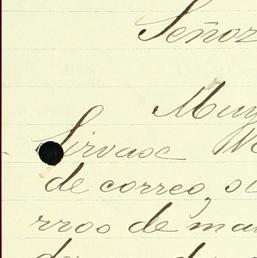 Señor
Muy
Sirvase
de correo, s
rros de ma